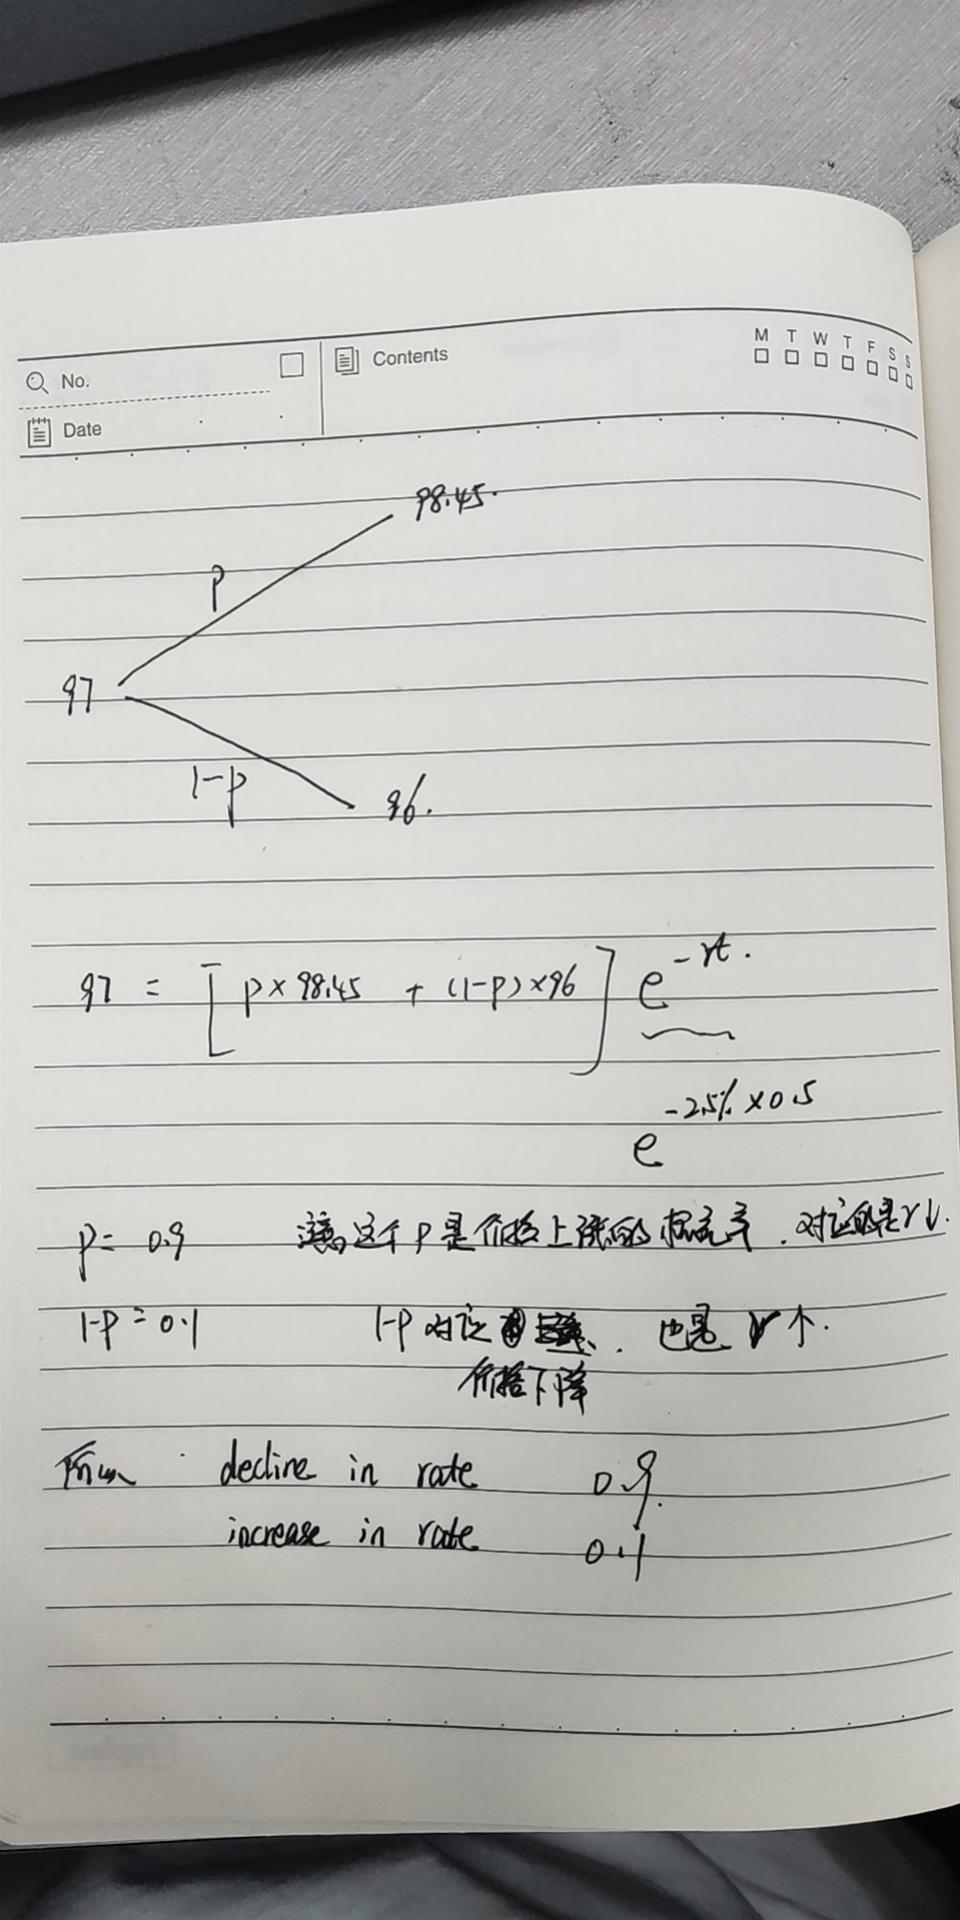 No.
Contents
M T W T F S S
Date
98.45.
P
97
1-p
96.
97 = [ p×98.45 + (1-p)×96 ] e^{-rt}.
e^{-2.5%×0.5}
p = 0.9 注意, 这个P是价格上涨的概率. 对应的是r↓.
1-p = 0.1 1-p 对应 . 也是 r个.
价格下降
所以 decline in rate 0.9.
increase in rate 0.1